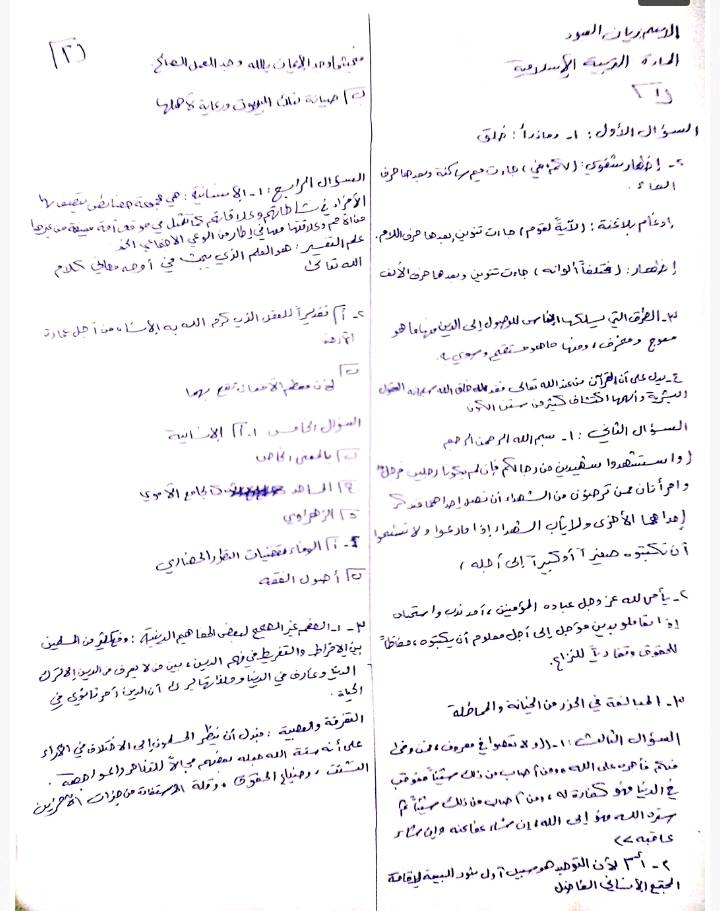 الاسم ريان العبود
المادة التربية الإسلامية
١
السؤال الأول : ١- وما ذرأ : خلق
٢- إظهار شفوي : ( ) جاءت ميم ساكنة وبعدها حرف
الفاء .
إدغام بلا غنة : ( لآيةً لقوم ) جاءت تنوين بعدها حرف اللام .
إظهار : ( مختلفاً ألوانه ) جاءت تنوين وبعدها حرف الألف
٣- الطرق التي يسلكها الناس للوصول إلى الدين منها ما هو
معوج ومنحرف ، ومنها ما هو مستقيم وسوي .
٤- يدل على أن القرآن من عند الله تعالى فقد خلق الله سبحانه العقول
البشرية وألهمها اكتشاف كثير من سنن الكون
السؤال الثاني : ١- بسم الله الرحمن الرحيم
( واستشهدوا شهيدين من رجالكم فإن لم يكونا رجلين فرجل
وامرأتان ممن ترضون من الشهداء أن تضل إحداهما فتذكر
إحداهما الأخرى ولا يأب الشهداء إذا ما دعوا ولا تسئموا
أن تكتبوه صغيراً أو كبيراً إلى أجله )
٢- يأمر الله عز وجل عباده المؤمنين ، أمر ندب واستحباب
إذا تعاملوا بدين مؤجل إلى أجل معلوم أن يكتبوه ، حفاظاً
للحقوق وتفادياً للنزاع .
٣- المبالغة في الحذر من الخيانة والمماطلة
السؤال الثالث : ١- ( ولا تعصوا في معروف ، فمن وفى
منكم فأجره على الله ، ومن أصاب من ذلك شيئاً فعوقب
في الدنيا فهو كفارة له ، ومن أصاب من ذلك شيئاً ثم
ستره الله فهو إلى الله ، إن شاء عفا عنه وإن شاء
عاقبه >>
٢- أ لأن التوحيد هو سبيل أول بنود البيعة لإقامة
المجتمع الإنساني الفاضل
٢
وحد الإيمان بالله وحد العمل الصالح .
ب صيانة لتلك البيوت ورعاية لأهلها
السؤال الرابع : ١- الإنسانية : هي مجموعة خصائص يتصف بها
الأفراد في نشاطاتهم وعلاقاتهم كما تتمثل في موقف أمة معينة من غيرها
من الأمم وعلاقتها معها في إطار من الوعي الأخلاقي الحر
علم التفسير : هو العلم الذي يبحث في أوجه معاني كلام
الله تعالى
٢- أ تقديراً للعقل الذي كرم الله به الإنسان من أجل عمارة
الأرض
ب لأن معظم الأعمال تقع بهما
السؤال الخامس ١- أ الإنسانية
ب بالمعنى الخاص
ج المساجد الجامع الأموي
د الزهراوي
٢- أ الوفاء بمقتضيات التطور الحضاري
ب أصول الفقه
٣- ١- الفهم غير الصحيح لبعض المفاهيم الدينية : وقع كثير من المسلمين
بين الإفراط والتفريط في فهم الدين ، بين من لا يعرف من الدين إلا ترك
الدنيا وغارق في الدنيا وملذاتها لا يرى أن الدين أمر ثانوي في
الحياة .
التفرقة والعصبية : فبدل أن ينظر المسلمون إلى الاختلاف في الآراء
على أنه سنة الله جعله بعضهم مجالاً للتناحر والمواجهة .
التشتت ، وضياع الحقوق ، وقلة الاستفادة من خبرات الآخرين